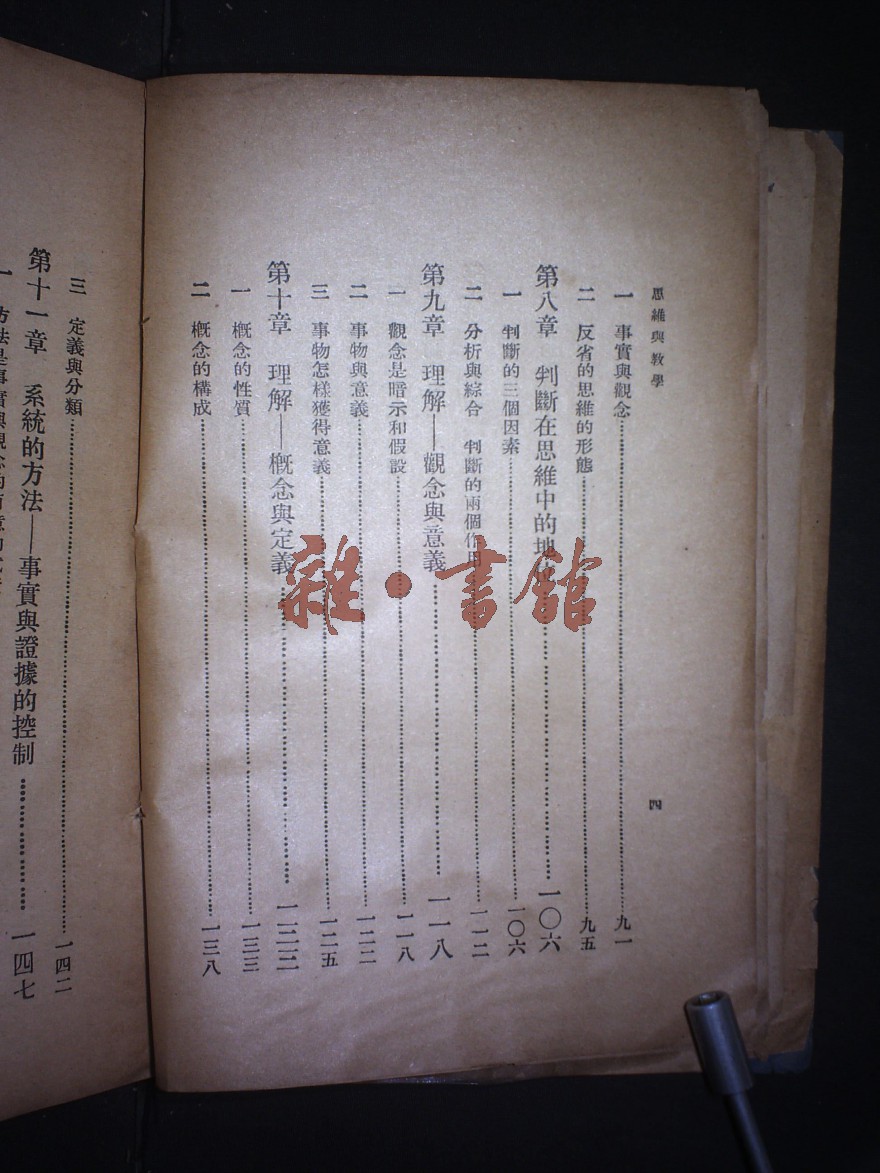 思維與教學
四
一 事實與觀念……九一
二 反省的思維的形態……九五
第八章 判斷在思維中的地……一〇六
一 判斷的三個因素……一〇六
二 分析與綜合 判斷的兩個作用……一一二
第九章 理解——觀念與意義……一一八
一 觀念是暗示和假設……一一八
二 事物與意義……一二二
三 事物怎樣獲得意義……一二五
第十章 理解——概念與定義……一三三
一 概念的性質……一三三
二 概念的構成……一三八
三 定義與分類……一四二
第十一章 系統的方法——事實與證據的控制……一四七
一 方法是事實與觀念的有意的
雜·書館